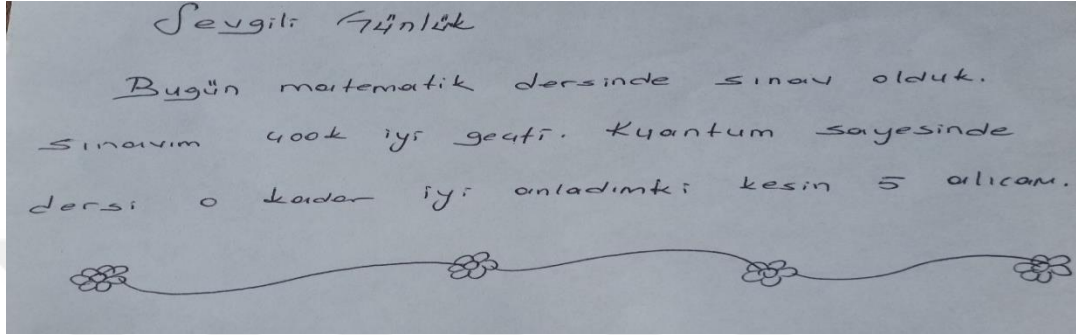 Sevgili Günlük
Bugün matematik dersinde sınav olduk.
sınavım çook iyi geçti. Kuantum sayesinde
dersi o kadar iyi anladımki kesin 5 alıcam.